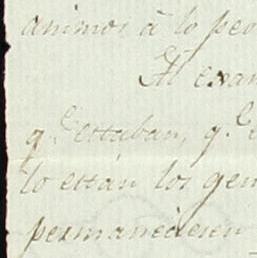 animos á lo peo
Al exam
q.e estaban, q.e
lo están los gen
permaneciesen